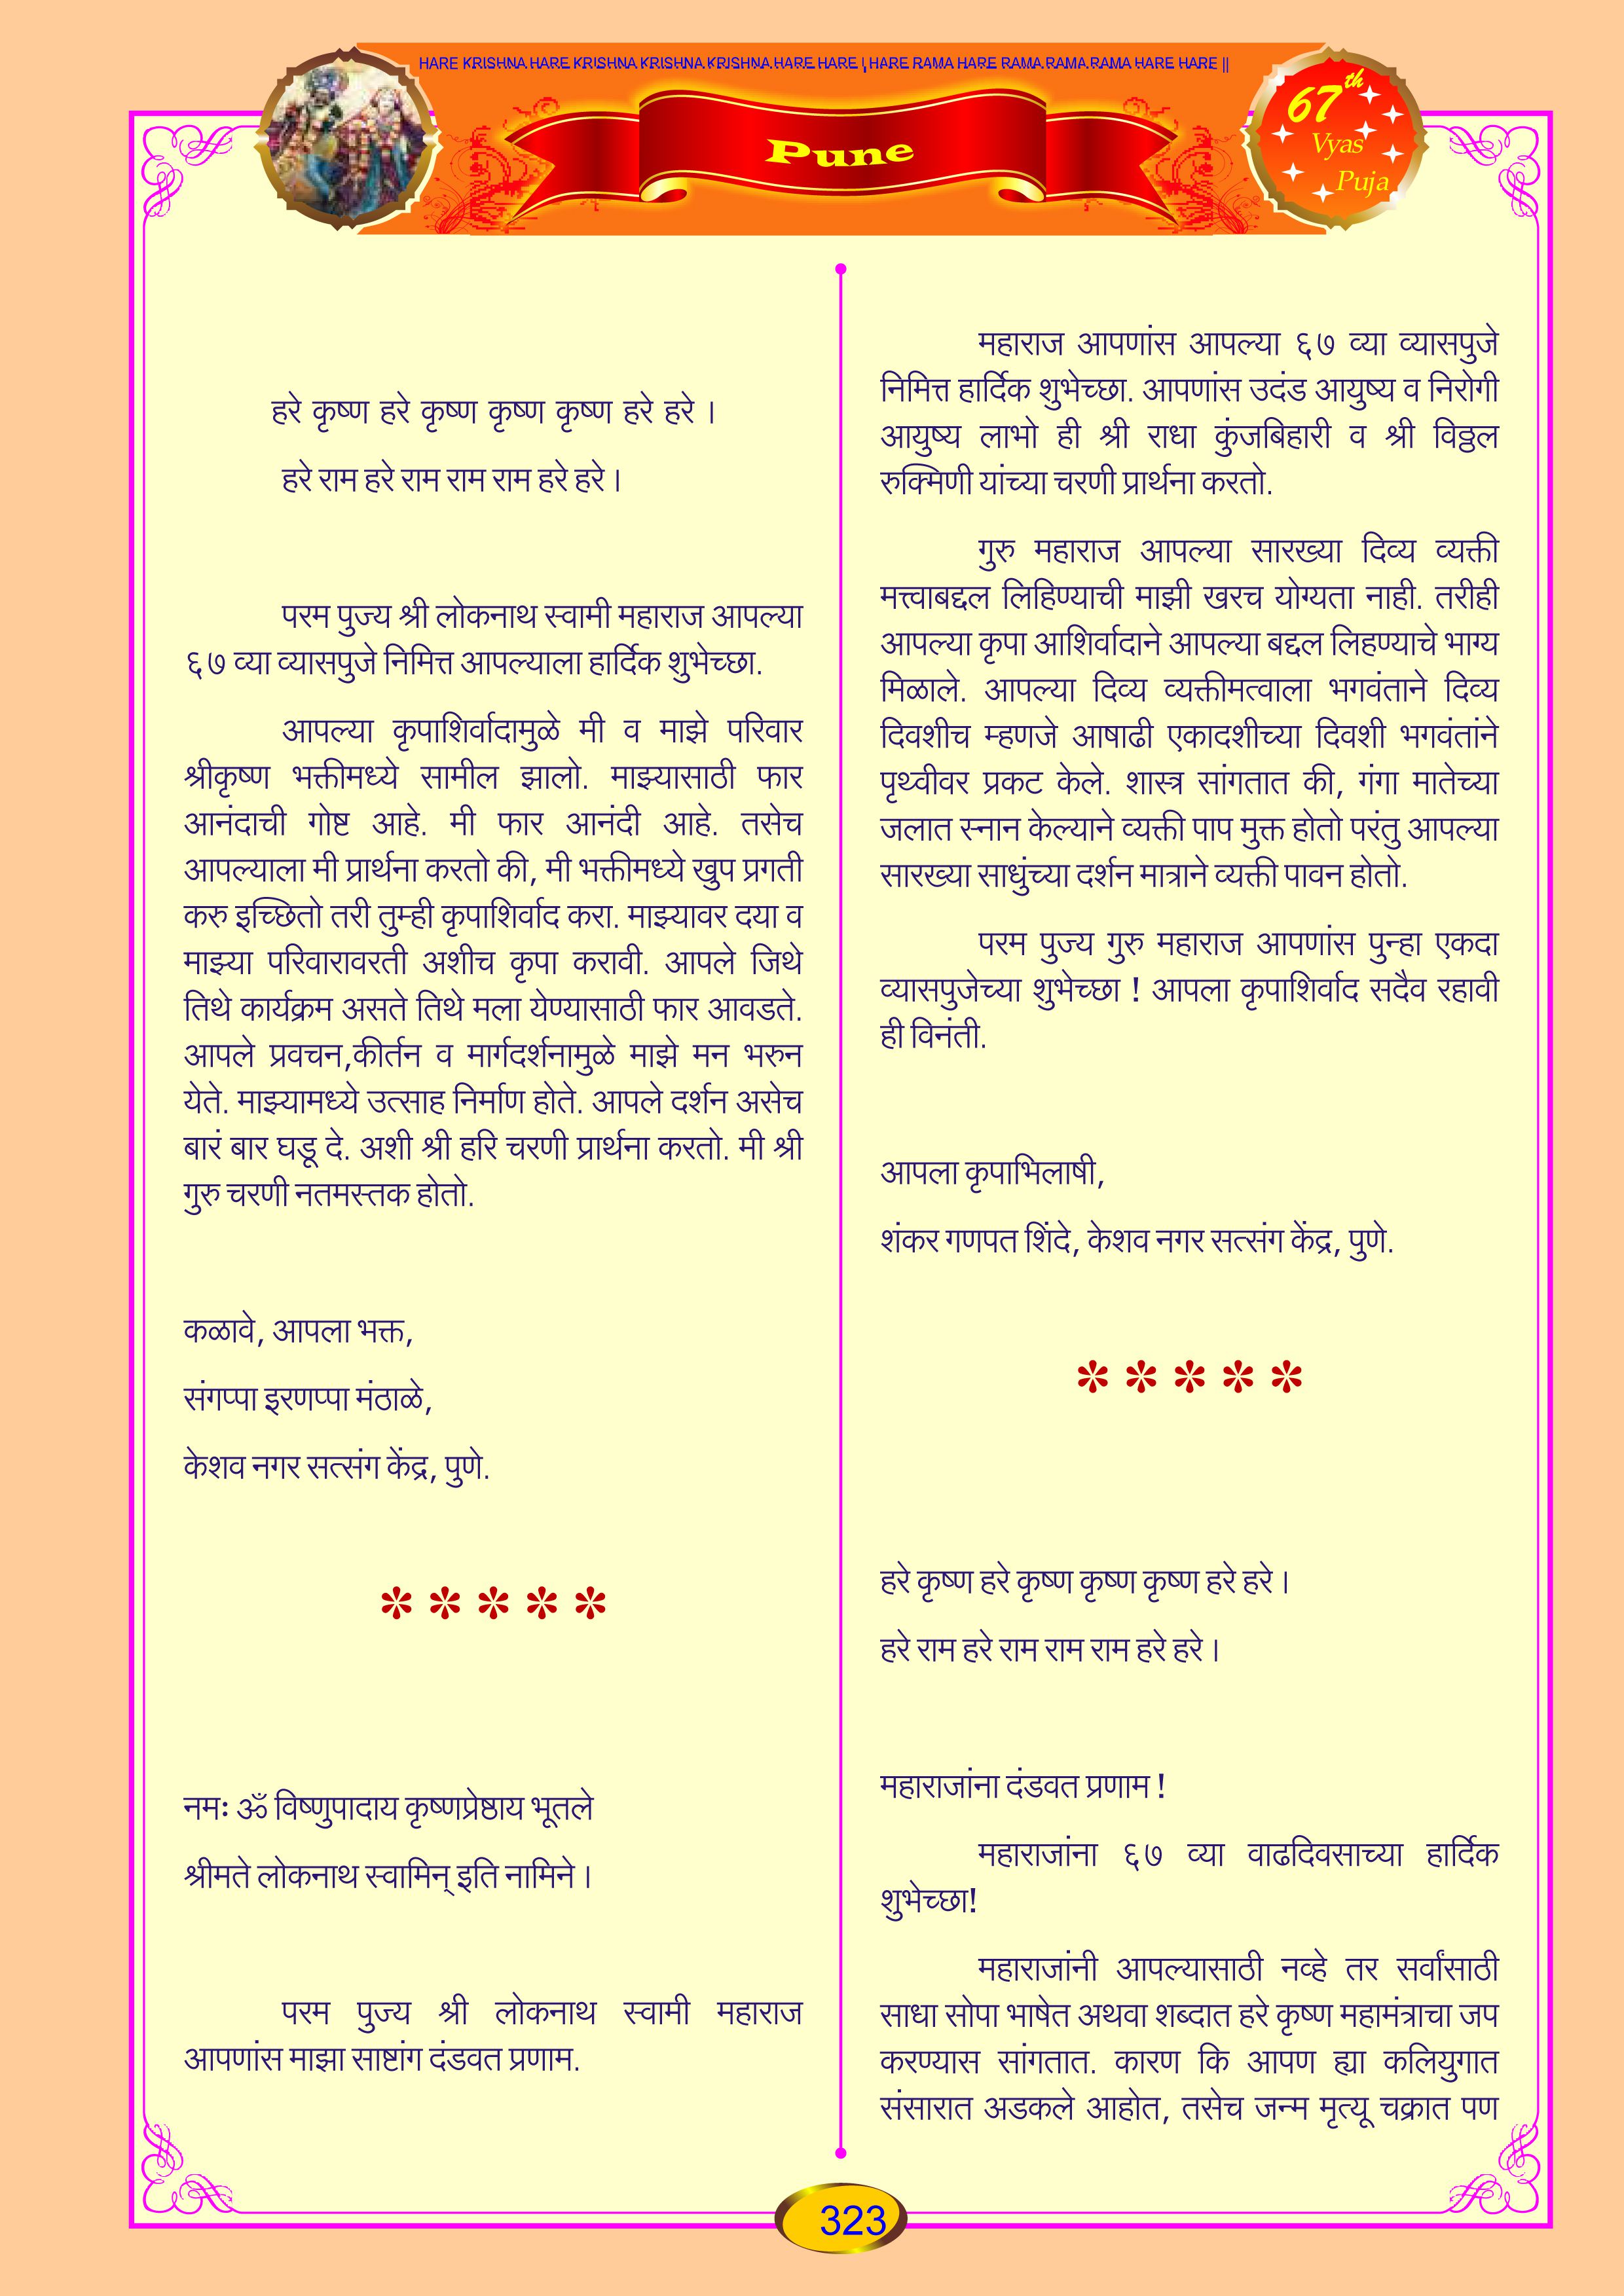 HARE KRISHNA HARE KRISHNA KRISHNA KRISHNA HARE HARE | HARE RAMA HARE RAMA RAMA RAMA HARE HARE ||
Pune
67th
Vyas
Puja
हरे कृष्ण हरे कृष्ण कृष्ण कृष्ण हरे हरे ।
हरे राम हरे राम राम राम हरे हरे ।
परम पुज्य श्री लोकनाथ स्वामी महाराज आपल्या
६७ व्या व्यासपुजे निमित्त आपल्याला हार्दिक शुभेच्छा.
आपल्या कृपाशिर्वादामुळे मी व माझे परिवार
श्रीकृष्ण भक्तीमध्ये सामील झालो. माझ्यासाठी फार
आनंदाची गोष्ट आहे. मी फार आनंदी आहे. तसेच
आपल्याला मी प्रार्थना करतो की, मी भक्तीमध्ये खुप प्रगती
करु इच्छितो तरी तुम्ही कृपाशिर्वाद करा. माझ्यावर दया व
माझ्या परिवारावरती अशीच कृपा करावी. आपले जिथे
तिथे कार्यक्रम असते तिथे मला येण्यासाठी फार आवडते.
आपले प्रवचन,कीर्तन व मार्गदर्शनामुळे माझे मन भरुन
येते. माझ्यामध्ये उत्साह निर्माण होते. आपले दर्शन असेच
बारं बार घडू दे. अशी श्री हरि चरणी प्रार्थना करतो. मी श्री
गुरु चरणी नतमस्तक होतो.
कळावे, आपला भक्त,
संगप्पा इरणप्पा मंठाळे,
केशव नगर सत्संग केंद्र, पुणे.
* * * * *
नमः ॐ विष्णुपादाय कृष्णप्रेष्ठाय भूतले
श्रीमते लोकनाथ स्वामिन् इति नामिने ।
परम पुज्य श्री लोकनाथ स्वामी महाराज
आपणांस माझा साष्टांग दंडवत प्रणाम.
महाराज आपणांस आपल्या ६७ व्या व्यासपुजे
निमित्त हार्दिक शुभेच्छा. आपणांस उदंड आयुष्य व निरोगी
आयुष्य लाभो ही श्री राधा कुंजबिहारी व श्री विठ्ठल
रुक्मिणी यांच्या चरणी प्रार्थना करतो.
गुरु महाराज आपल्या सारख्या दिव्य व्यक्ती
मत्त्वाबद्दल लिहिण्याची माझी खरच योग्यता नाही. तरीही
आपल्या कृपा आशिर्वादाने आपल्या बद्दल लिहण्याचे भाग्य
मिळाले. आपल्या दिव्य व्यक्तीमत्वाला भगवंताने दिव्य
दिवशीच म्हणजे आषाढी एकादशीच्या दिवशी भगवंतांने
पृथ्वीवर प्रकट केले. शास्त्र सांगतात की, गंगा मातेच्या
जलात स्नान केल्याने व्यक्ती पाप मुक्त होतो परंतु आपल्या
सारख्या साधुंच्या दर्शन मात्राने व्यक्ती पावन होतो.
परम पुज्य गुरु महाराज आपणांस पुन्हा एकदा
व्यासपुजेच्या शुभेच्छा ! आपला कृपाशिर्वाद सदैव रहावी
ही विनंती.
आपला कृपाभिलाषी,
शंकर गणपत शिंदे, केशव नगर सत्संग केंद्र, पुणे.
* * * * *
हरे कृष्ण हरे कृष्ण कृष्ण कृष्ण हरे हरे ।
हरे राम हरे राम राम राम हरे हरे ।
महाराजांना दंडवत प्रणाम !
महाराजांना ६७ व्या वाढदिवसाच्या हार्दिक
शुभेच्छा!
महाराजांनी आपल्यासाठी नव्हे तर सर्वांसाठी
साधा सोपा भाषेत अथवा शब्दात हरे कृष्ण महामंत्राचा जप
करण्यास सांगतात. कारण कि आपण ह्या कलियुगात
संसारात अडकले आहोत, तसेच जन्म मृत्यू चक्रात पण
323